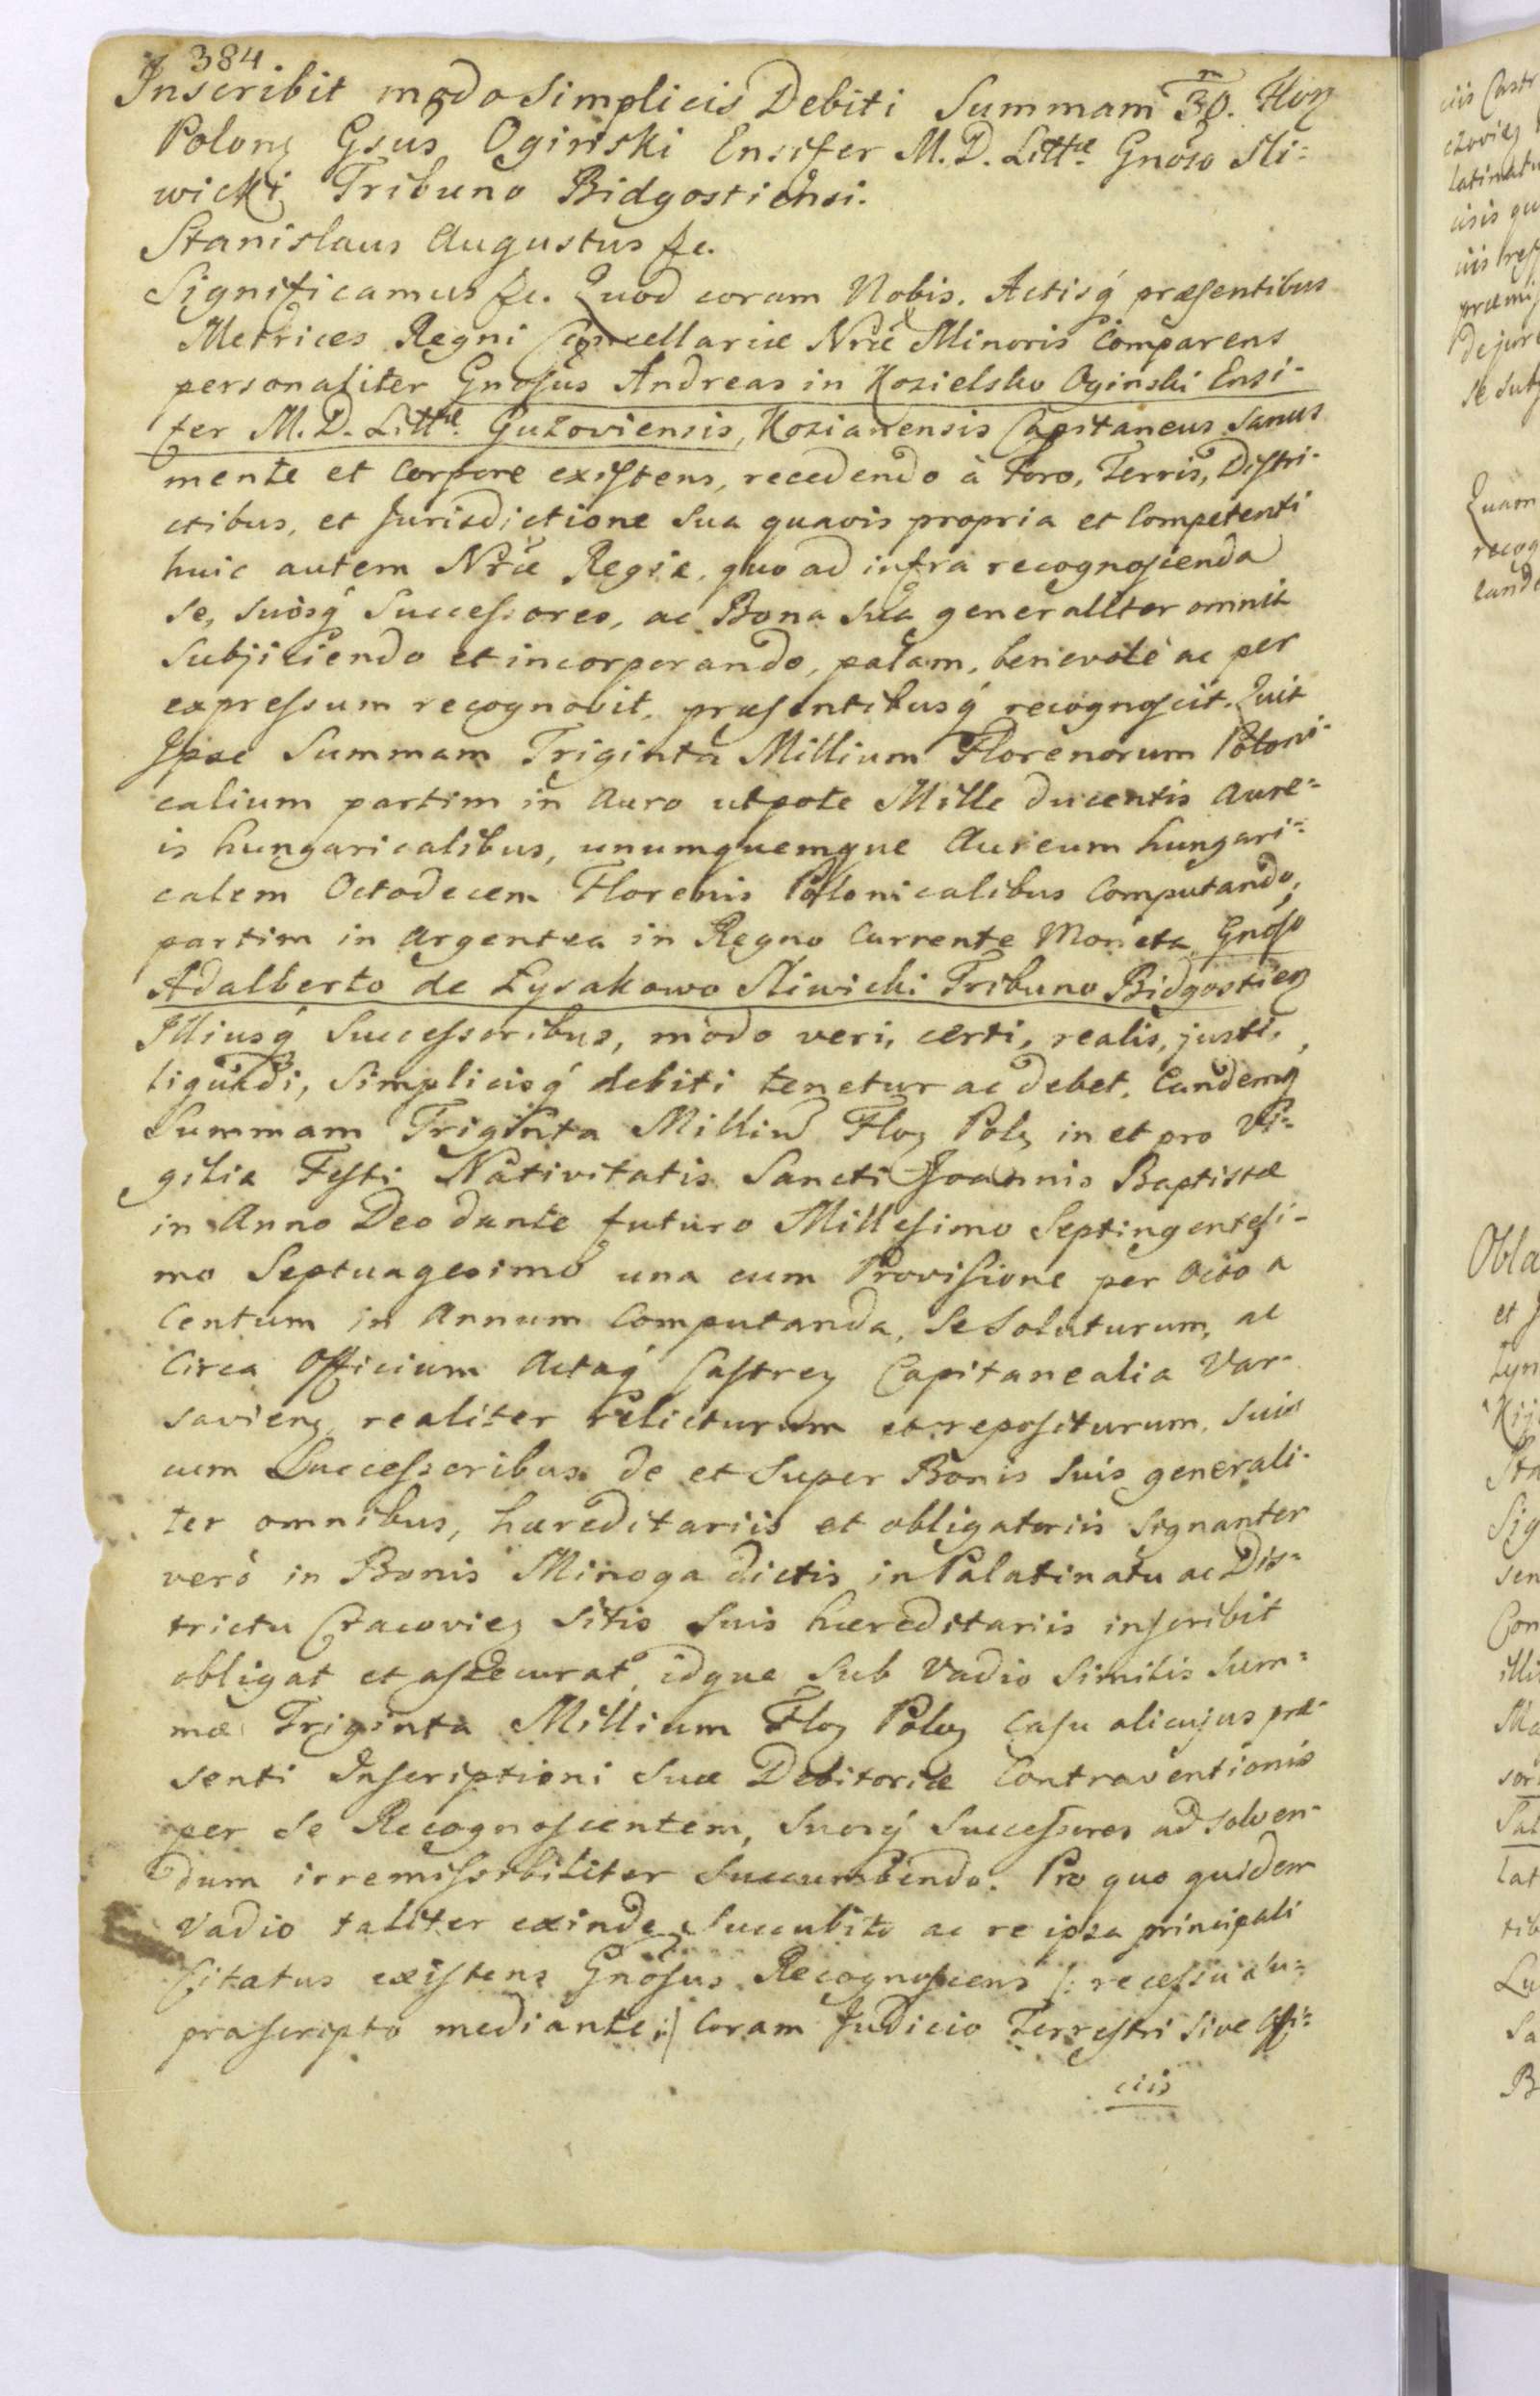 384
Inscribit modo Simplicis Debiti Summam 30.m Flor
Polonz Gsus Oginski Ensifer M. D. Littae. Gnoso Sli=
wicki Tribuno Bidgostiensi.
Stanislaus Augustus &c.
Significamus &c. Quod coram Nobis. Actisq́ præsentibus
Metrices Regni Cancellariæ Nræ Minoris Comparens
personaliter Gnosus Andreas in Kozielsko Oginski Ensi-
fer M. D. Littae. Guzoviensis, Kozianensis Capitaneus Sanus
mente et Corpore existens, recedendo à Foro, Terris, Distri-
ctibus, et Jurisdictione Sua quavis propria et Competenti
huic autem Nræ Regiæ, quo ad infra recognoscenda
se, suosq́ Successores, ac Bona Sua generaliter omnia
Subjiciendo et incorporando, palam, benevolè ac per
expressum recognovit, præsentibusq́ recognoscit. Quit
Ipse Summam Triginta Millium Florenorum Poloni-
calium partim in Auro utpote Mille ducentis Aure=
is hungaricalibus, unumquemque Aureum hungari=
calem Octodecem Florenis Polonicalibus Computando,
partim in Argentea in Regno Currente Moneta Gnoso
Adalberto de Łysakowo Sliwicki Tribuno Bidgostienz
Illiusq́ Successoribus, modo veri, certi, realis, justi,
liquidi, Simplicisq́ debiti tenetur ac debet. Eandemq
Summam Triginta Milliu Floz Polz in et pro Vi=
gilia Festi Nativitatis Sancti Joannis Baptistæ
in Anno Deo dante futuro Millesimo Septingentesi-
mo Septuagesimo una cum Provisione per Octo a
Centum in Annum Computanda, Se Soluturum, ac
Circa Officium Actaq́ Castrez Capitanealia Var-
savienz realiter relicturum et repositurum, suis
cum Successoribus de et Super Bonis Suis generali-
ter omnibus, hæreditariis et obligatoriis Signanter
verò in Bonis Minoga dictis in Palatinatu ac Dis=
trictu Cracoviez Sitis Suis hæreditariis inscribit
obligat et assecurat, idque Sub Vadio Similis Sum=
mæ Triginta Millium Floz Poloz Casu alicujus præ-
senti Inscriptioni Suæ Debitoriæ Contraventionis
per Se Recognoscentem, Suosq́ Successores ad solven-
dum irremissibiliter Succumbendo. Pro quo quidem
Vadio taliter exinde Succubito ac re ipsa principali
Citatus existens Gnosus Recognoscens /: recessu a su=
prascripto mediante :/ Coram Judicio Terrestri Sive Offi=
ciis